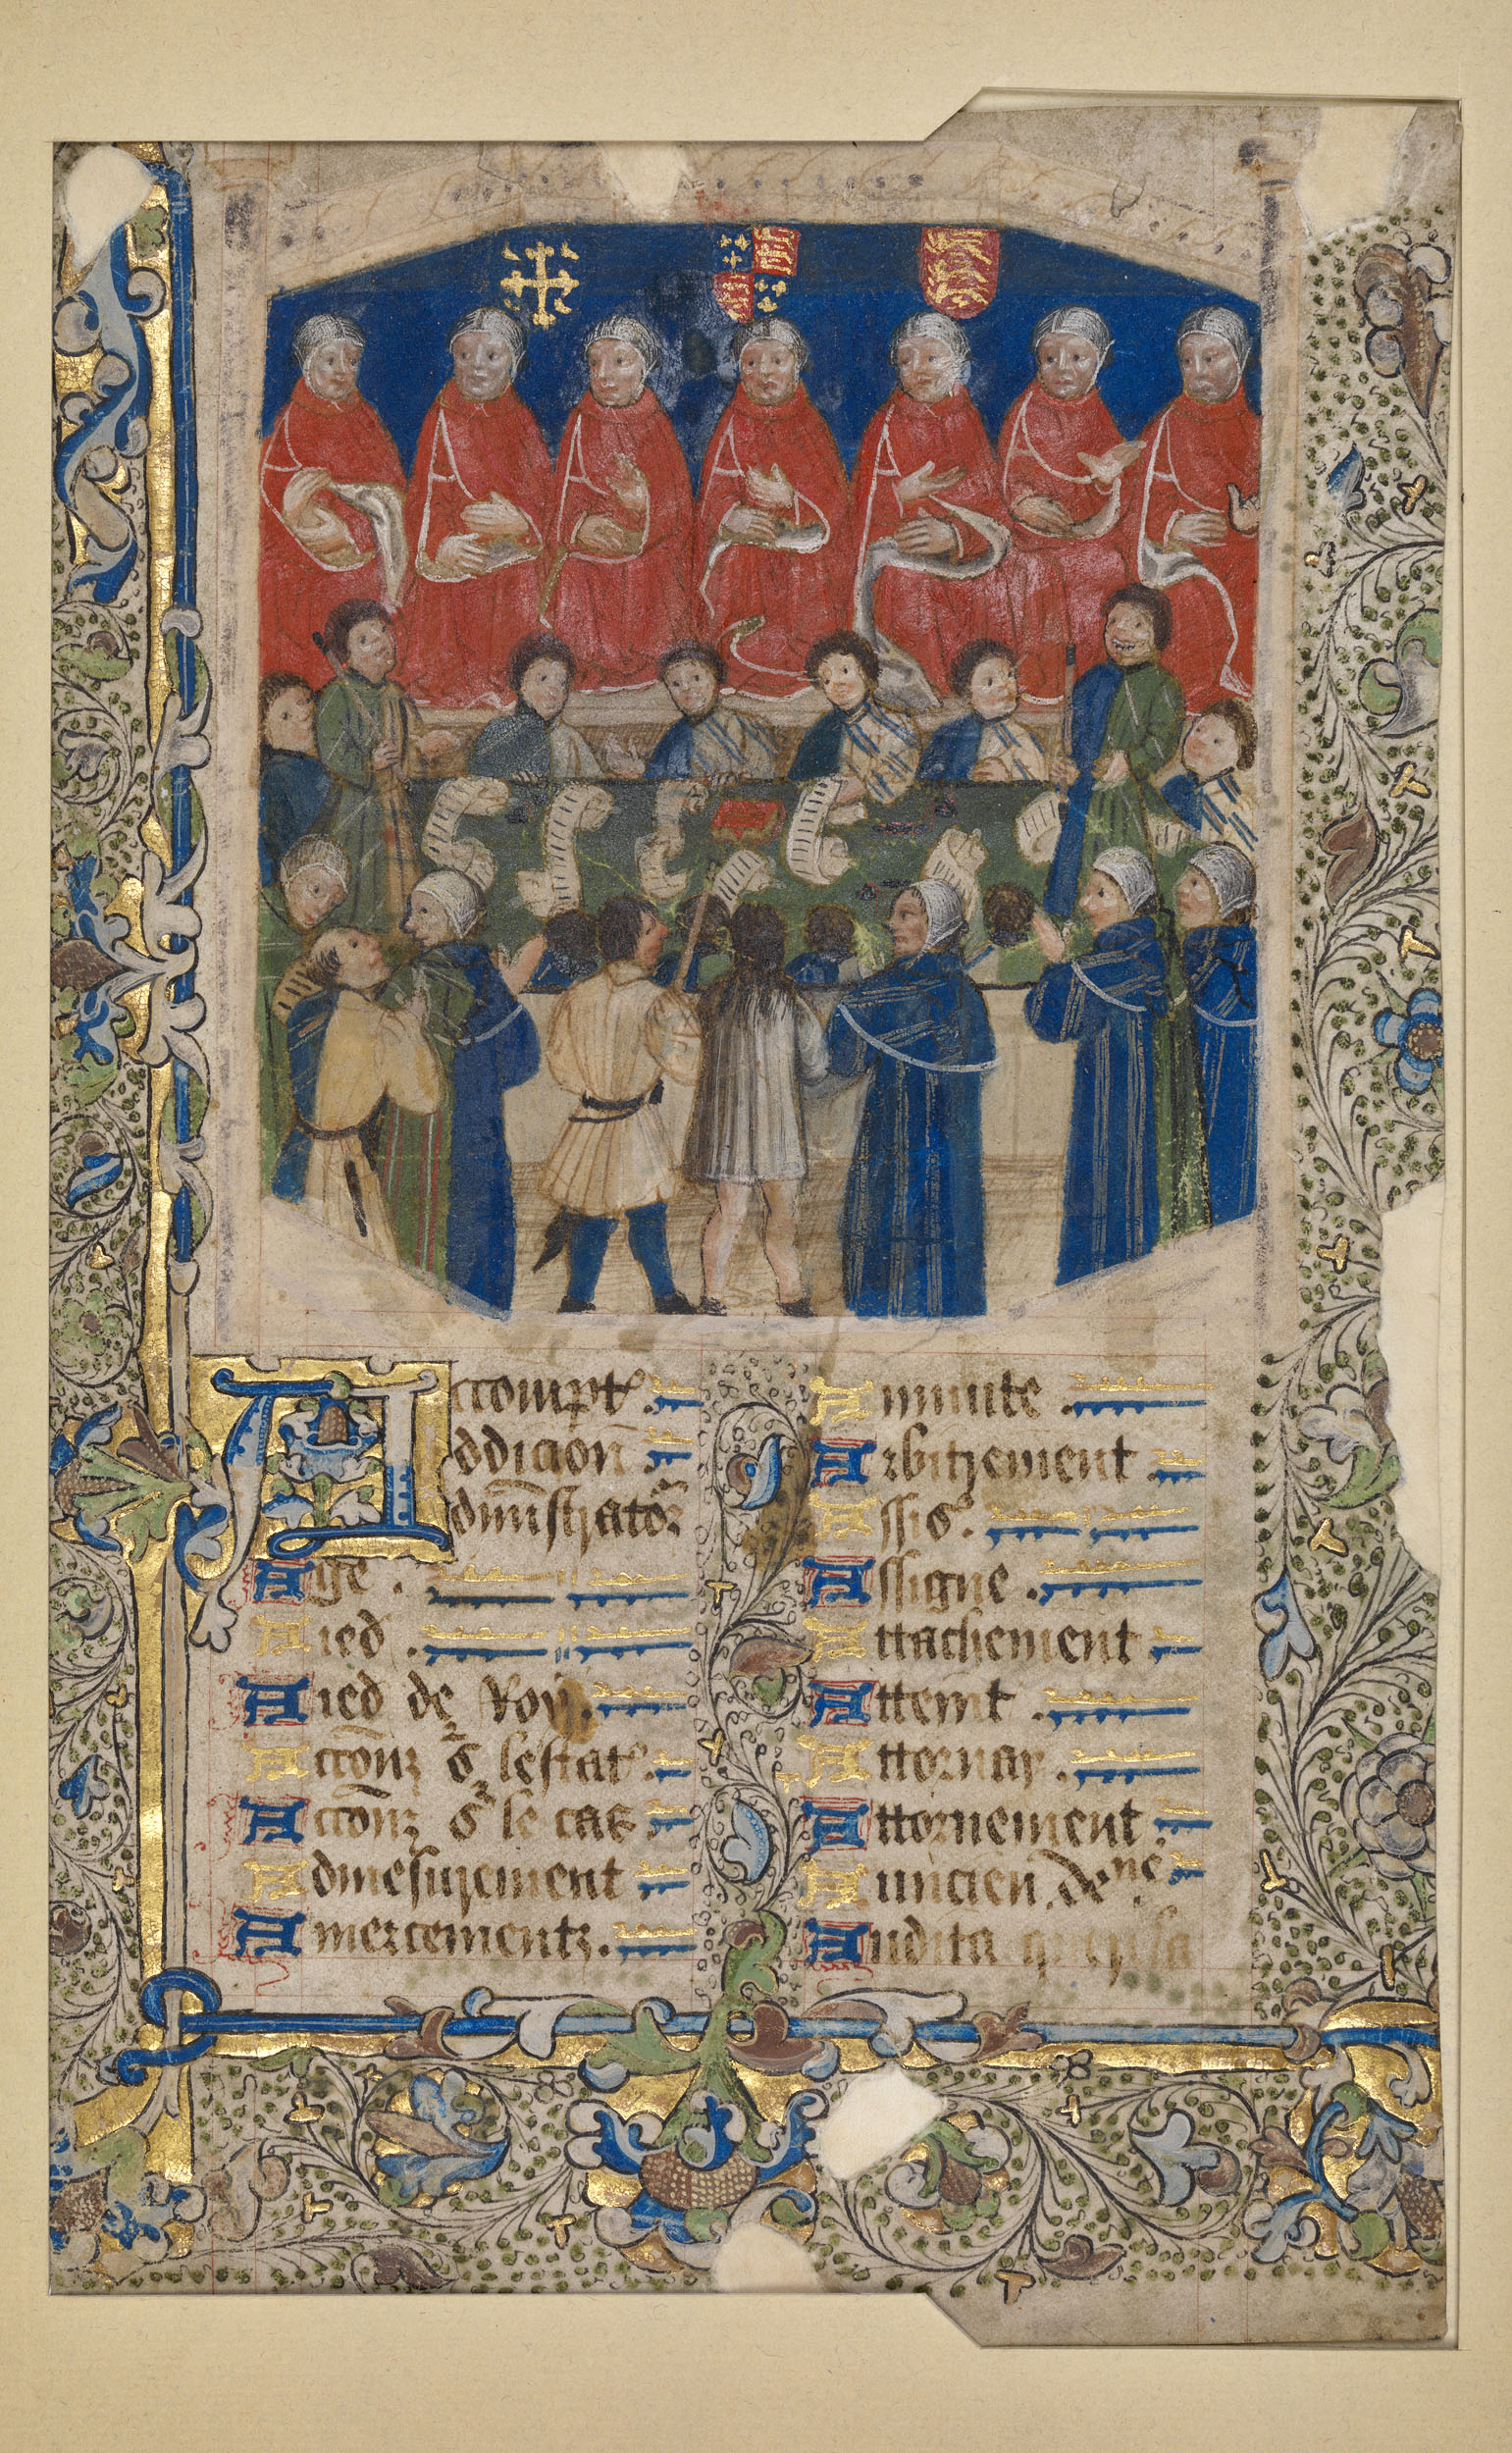 Accompt'
Addicion
Adm̄istrato2
Age .
Aied .
Aied de Roy.
Accōnz s2 lestat'
Accōnz s2 le cas
Admesurement
Amercementz.
Annuite
Arbitrement
Assis'.
Assigne .
Attachement
Atteynt .
Attornay .
Attornement
Auncien deñe
Audita q